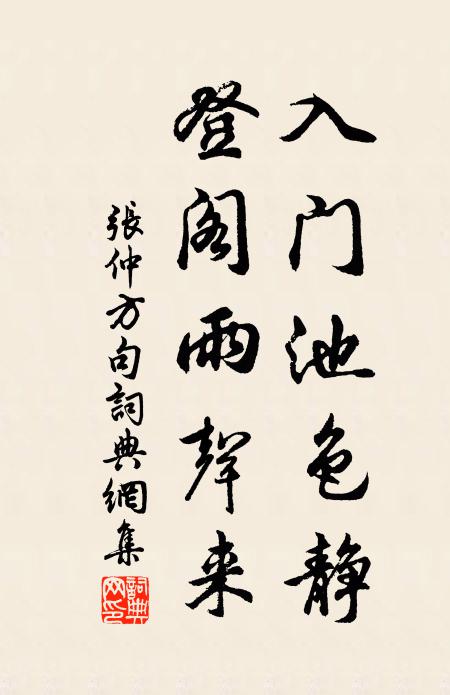 入门池色静
登阁雨聲来
張仲方句詞典網集
詞典
网印